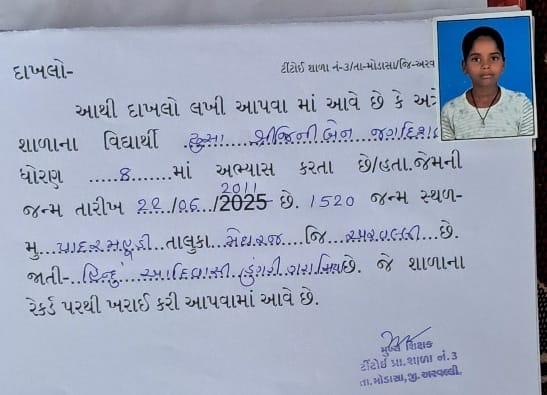 દાખલો-
ટીંટોઈ શાળા નં-૩/તા-મોડાસા/જિ-અરવ
આથી દાખલો લખી આપવા માં આવે છે કે અત્રે
શાળાના વિદ્યાર્થી ડુમા શ્રીજિનીબેન જગદિશ
ધોરણ ......8......માં અભ્યાસ કરતા છે/હતા.જેમની
2011
જન્મ તારીખ 22/06/2025 છે. 1520 જન્મ સ્થળ-
મુ...પાદરમહુડી...તાલુકા...મેઘરજ...જિ...અરવલ્લી...છે.
જાતી-..હિન્દુ આદિવાસી ડુંગરી ગરાસિયા છે. જે શાળાના
રેકર્ડ પરથી ખરાઈ કરી આપવામાં આવે છે.
મુખ્ય શિક્ષક
ટીંટોઈ પ્રા.શાળા નં.3
તા.મોડાસા,જી.અરવલ્લી.